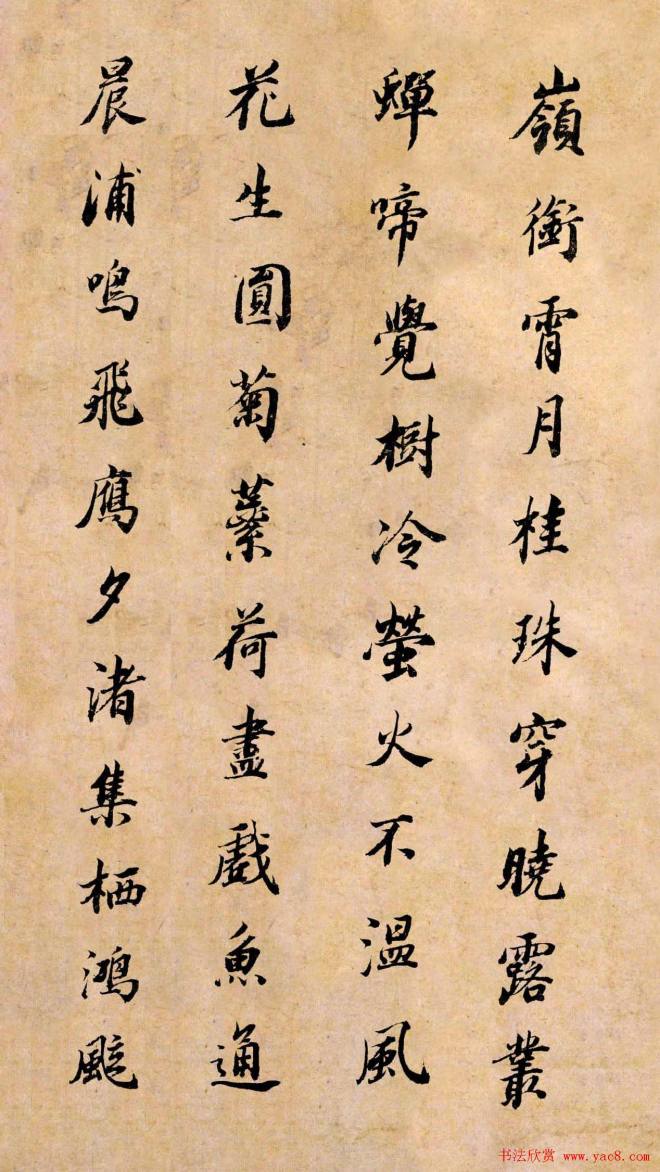 嶺銜霄月桂珠穿曉露叢
蟬啼覺樹冷螢火不溫風
花生圓菊蘂荷盡戲魚通
晨浦鳴飛鴈夕渚集栖鴻颯
书法欣赏 www.yac8.com